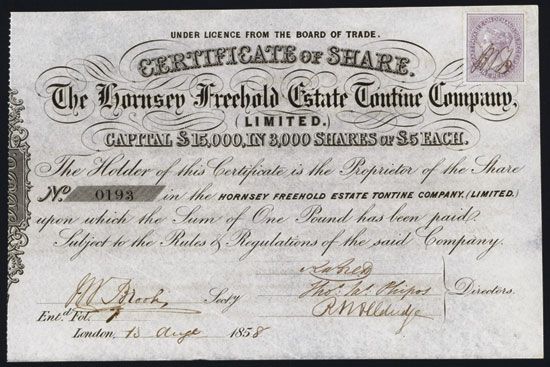 UNDER LICENCE FROM THE BOARD OF TRADE.
CERTIFICATE OF SHARE.
The Hornsey Freehold Estate Tontine Company,
(LIMITED.)
CAPITAL £15,000, IN 3,000 SHARES OF £5 EACH.
The Holder of this Certificate is the Proprietor of the Share
No. 0193 in the HORNSEY FREEHOLD ESTATE TONTINE COMPANY, (LIMITED.)
upon which the Sum of One Pound has been paid
Subject to the Rules & Regulations of the said Company.
Secty
Directors.
Entd. Fol.
London, 13 Augt 1858